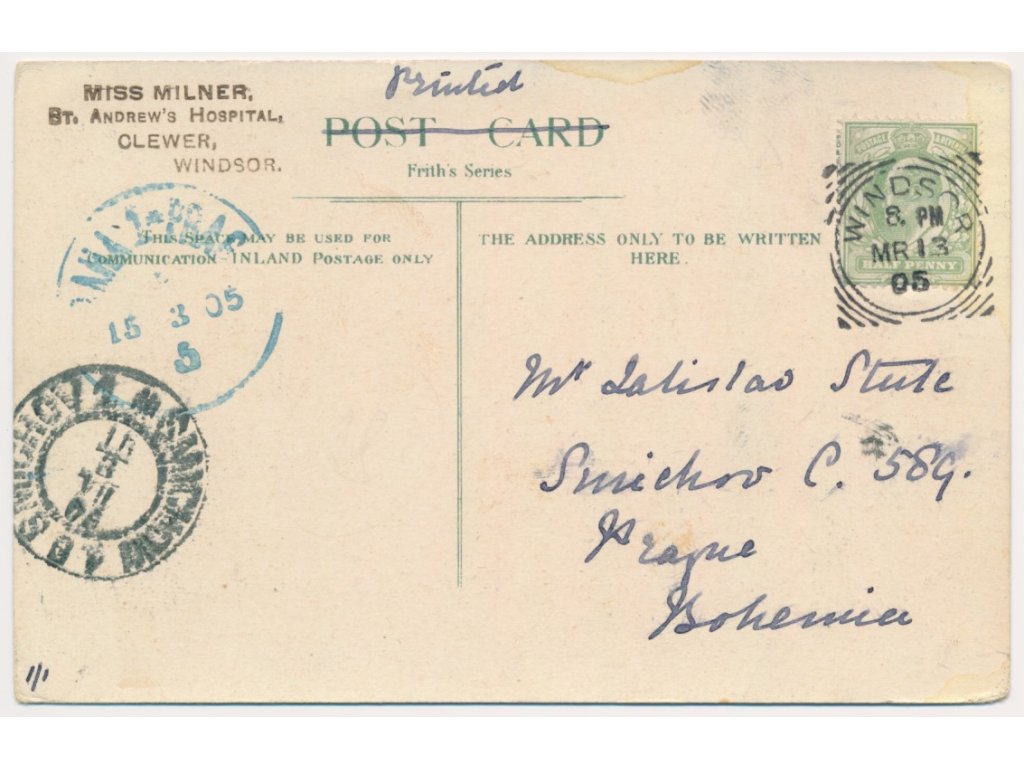 Printed
MISS MILNER,
ST. ANDREW'S HOSPITAL,
CLEWER,
WINDSOR.
POST CARD
Frith's Series
THIS SPACE MAY BE USED FOR
COMMUNICATION INLAND POSTAGE ONLY
THE ADDRESS ONLY TO BE WRITTEN
HERE.
POSTAGE
HALF PENNY
WINDSOR
8. PM
MR 13
05
15 3 05
5
SMICHOW
Mr Stule
Smichov C. 589.
Prague
Bohemia
1/1